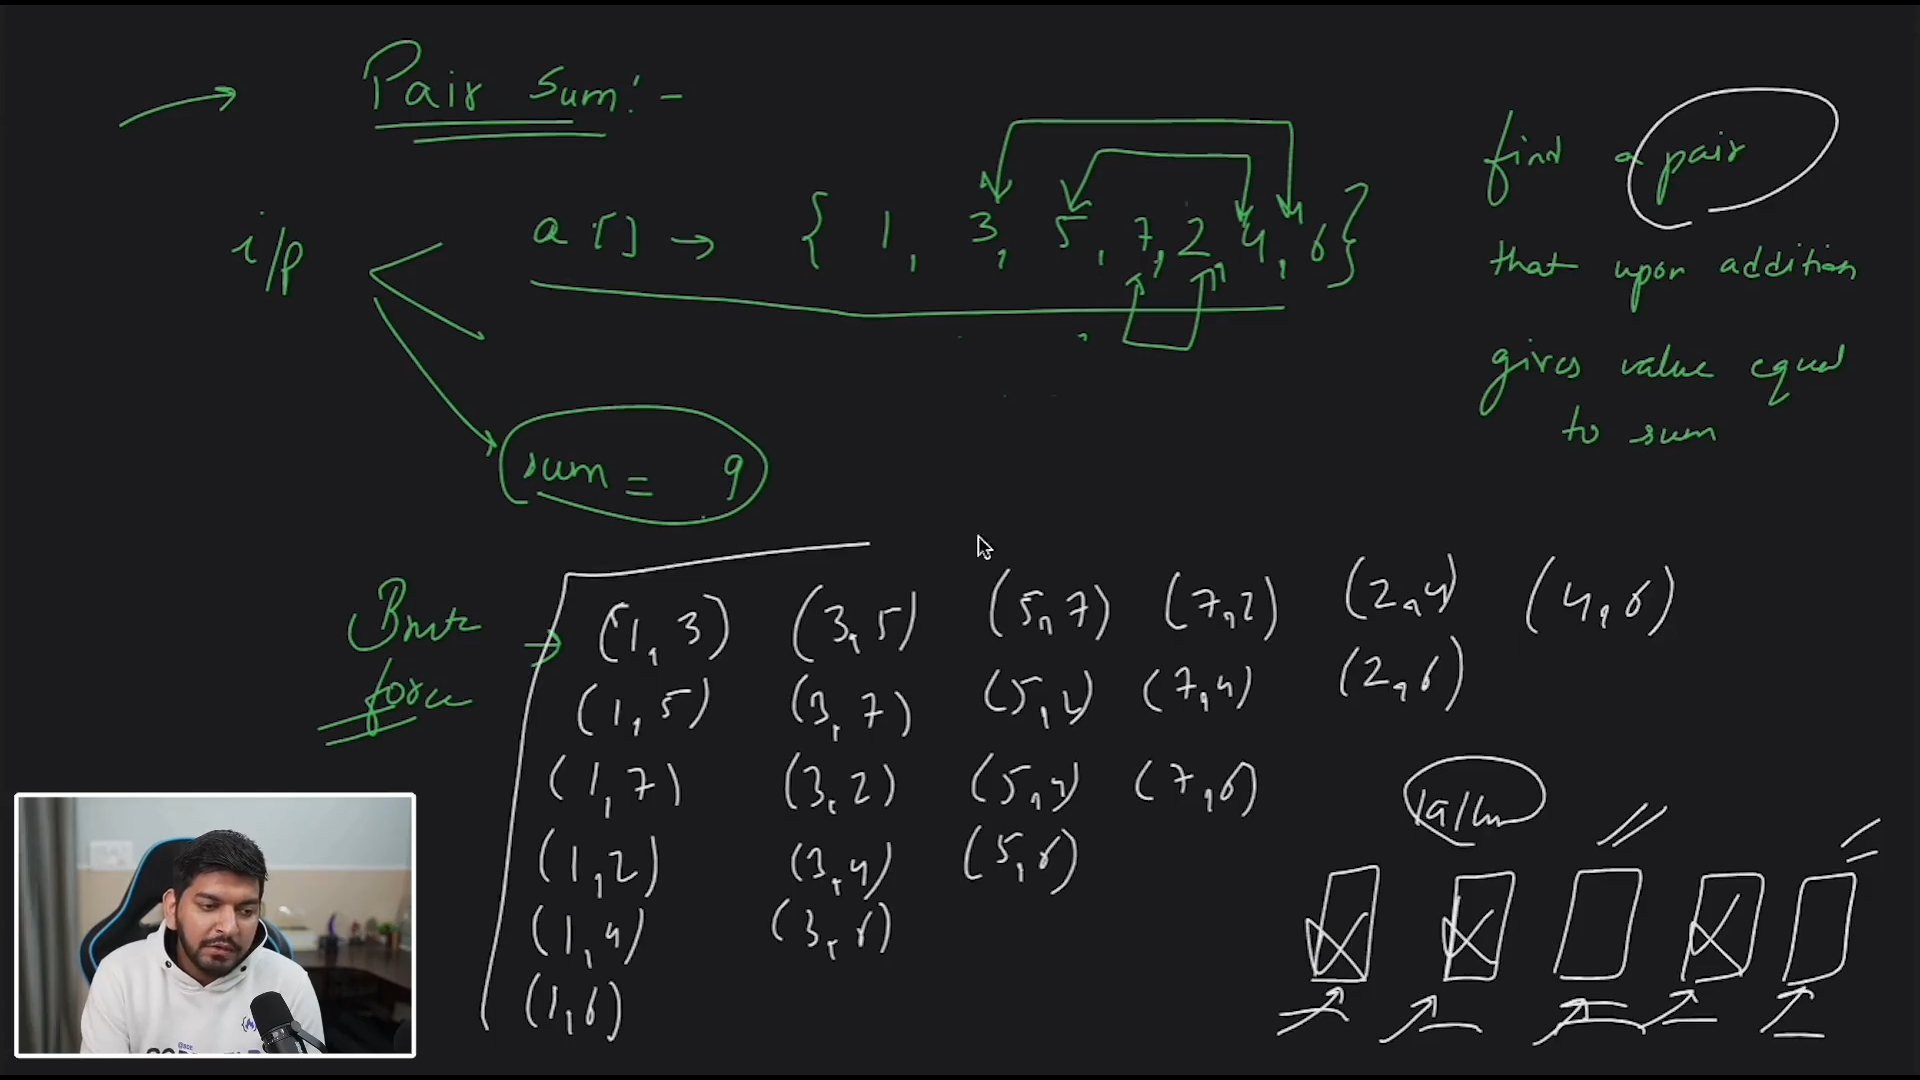 Pair Sum:-
i/p
a[] → { 1, 3, 5, 7, 2, 4, 6 }
sum = 9
find a pair
that upon addition
gives value equal
to sum
Brute
force
(1, 3) (3, 5) (5, 7) (7, 2) (2, 4) (4, 6)
(1, 5) (3, 7) (5, 2) (7, 4) (2, 6)
(1, 7) (3, 2) (5, 4) (7, 6)
(1, 2) (3, 4) (5, 6)
(1, 4) (3, 6)
(1, 6)